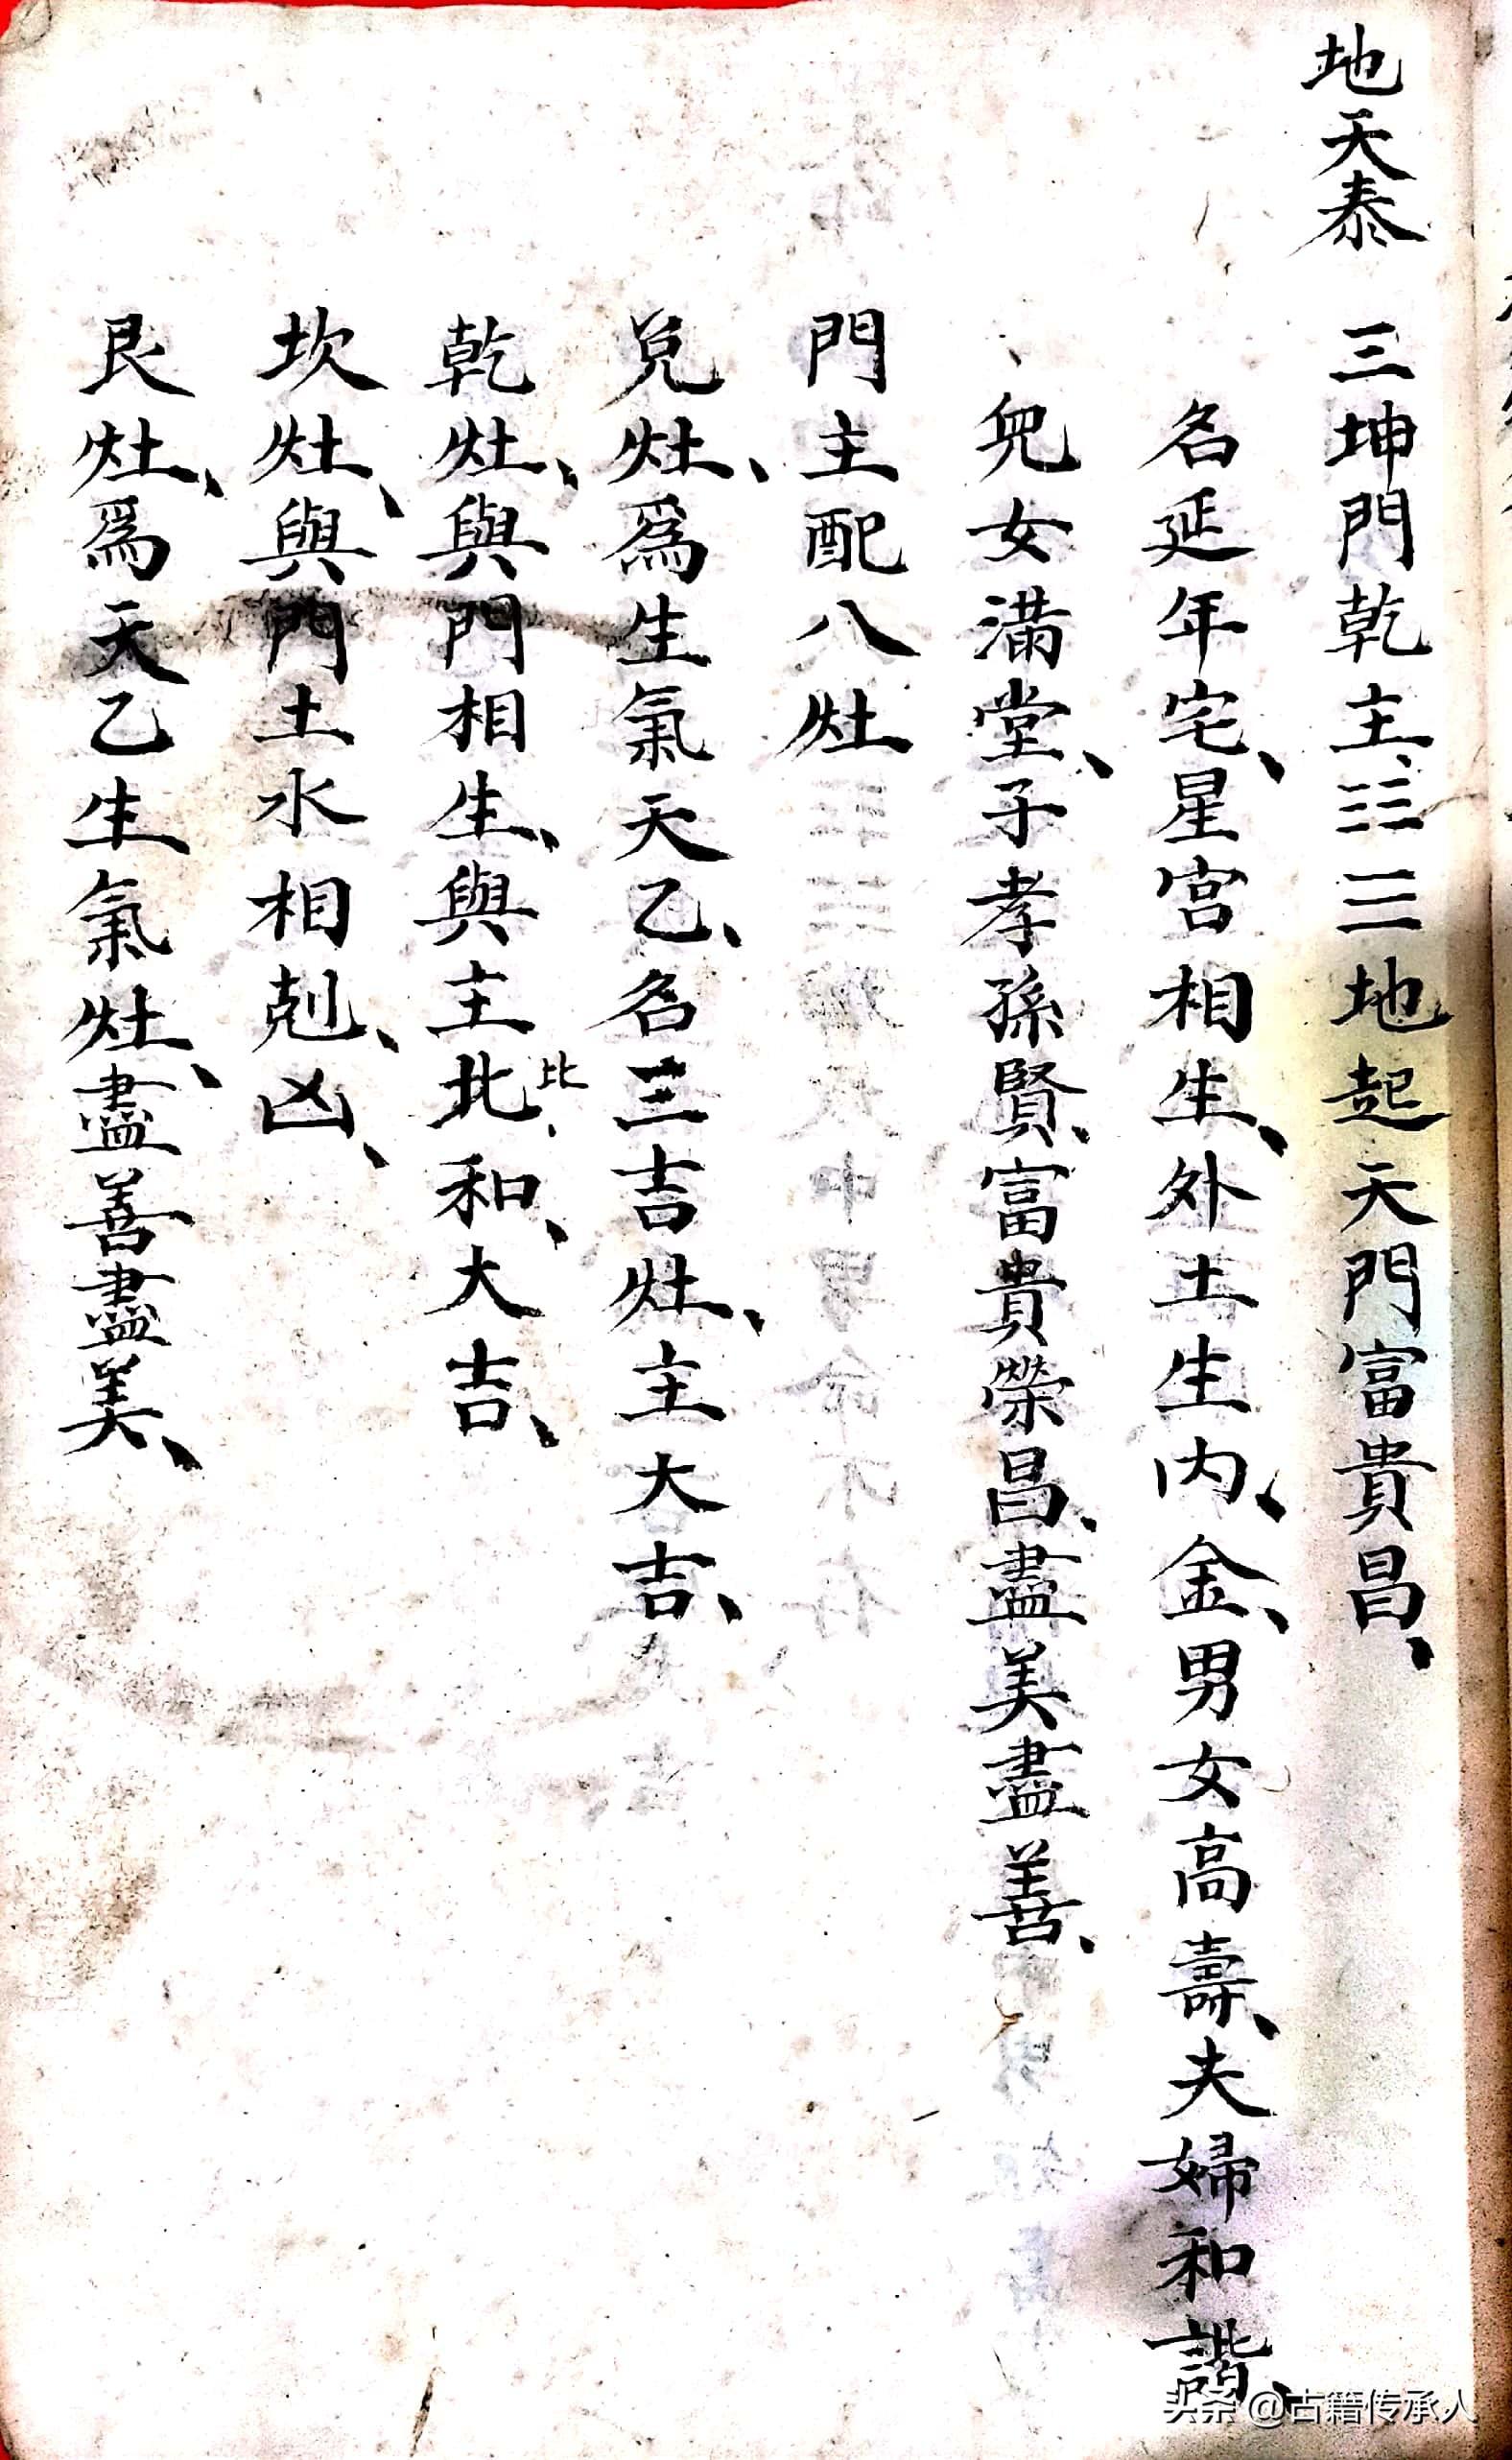 地天泰 三坤門乾主、☷☰地起天門富貴昌、
名延年宅、星宮相生、外土生內、金、男女高壽、夫婦和諧、
兒女滿堂、子孝孫賢、富貴榮昌、盡美盡善、
門主配八灶
兌灶、為生氣天乙、名三吉灶、主大吉、
乾灶、與門相生、與主北比和、大吉、
坎灶、與門土水相剋、凶、
艮灶、為天乙生氣灶、盡善盡美、
头条 @古籍传承人